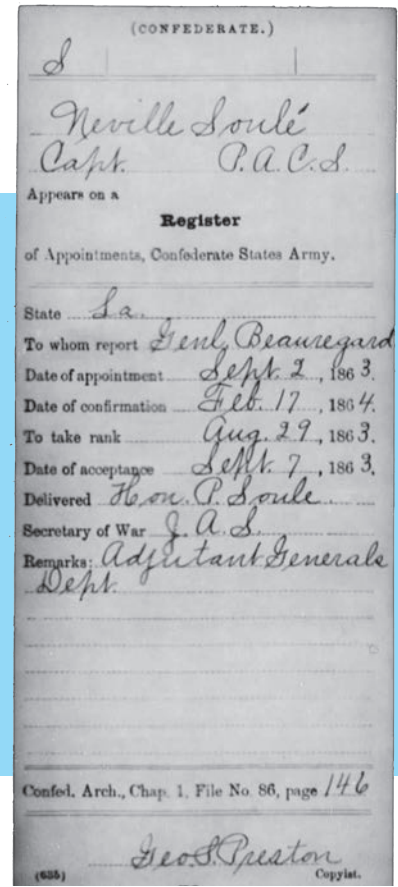 (CONFEDERATE.)
S
Neville Soulé
Capt. P.A.C.S.
Appears on a
Register
of Appointments, Confederate States Army.
State La.
To whom report Genl. Beauregard
Date of appointment Sept. 2, 1863.
Date of confirmation Feb. 17, 1864.
To take rank Aug. 29, 1863.
Date of acceptance Sept. 7, 1863.
Delivered Hon. P. Soule
Secretary of War J. A. S.
Remarks: Adjutant Generals
Dept.
Confed. Arch., Chap. 1, File No. 86, page 146
Geo. S. Preston
(635) Copyist.